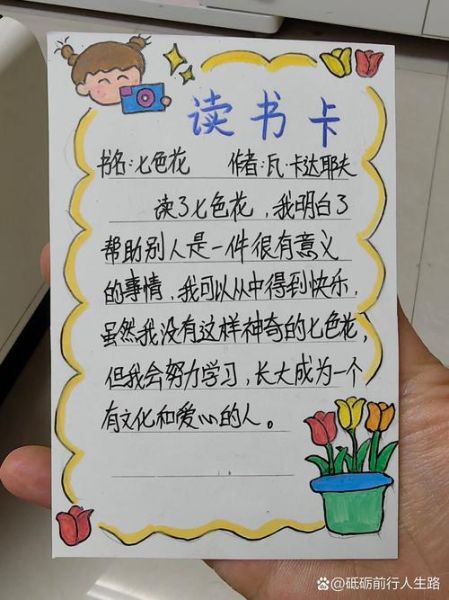 读书卡
书名:七色花 作者:瓦·卡达耶夫
读了七色花,我明白了
帮助别人是一件很有意义
的事情,我可以从中得到快乐,
虽然我没有这样神奇的七色花,
但我会努力学习,长大成为一个
有文化和爱心的人。
@砥砺前行人生路